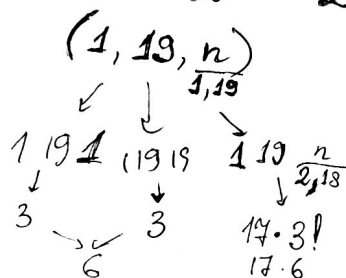 (1, 19, n)
1,19
1 19 1 1 19 19 1 19 n
2,18
3 3 17·3!
6 17·6